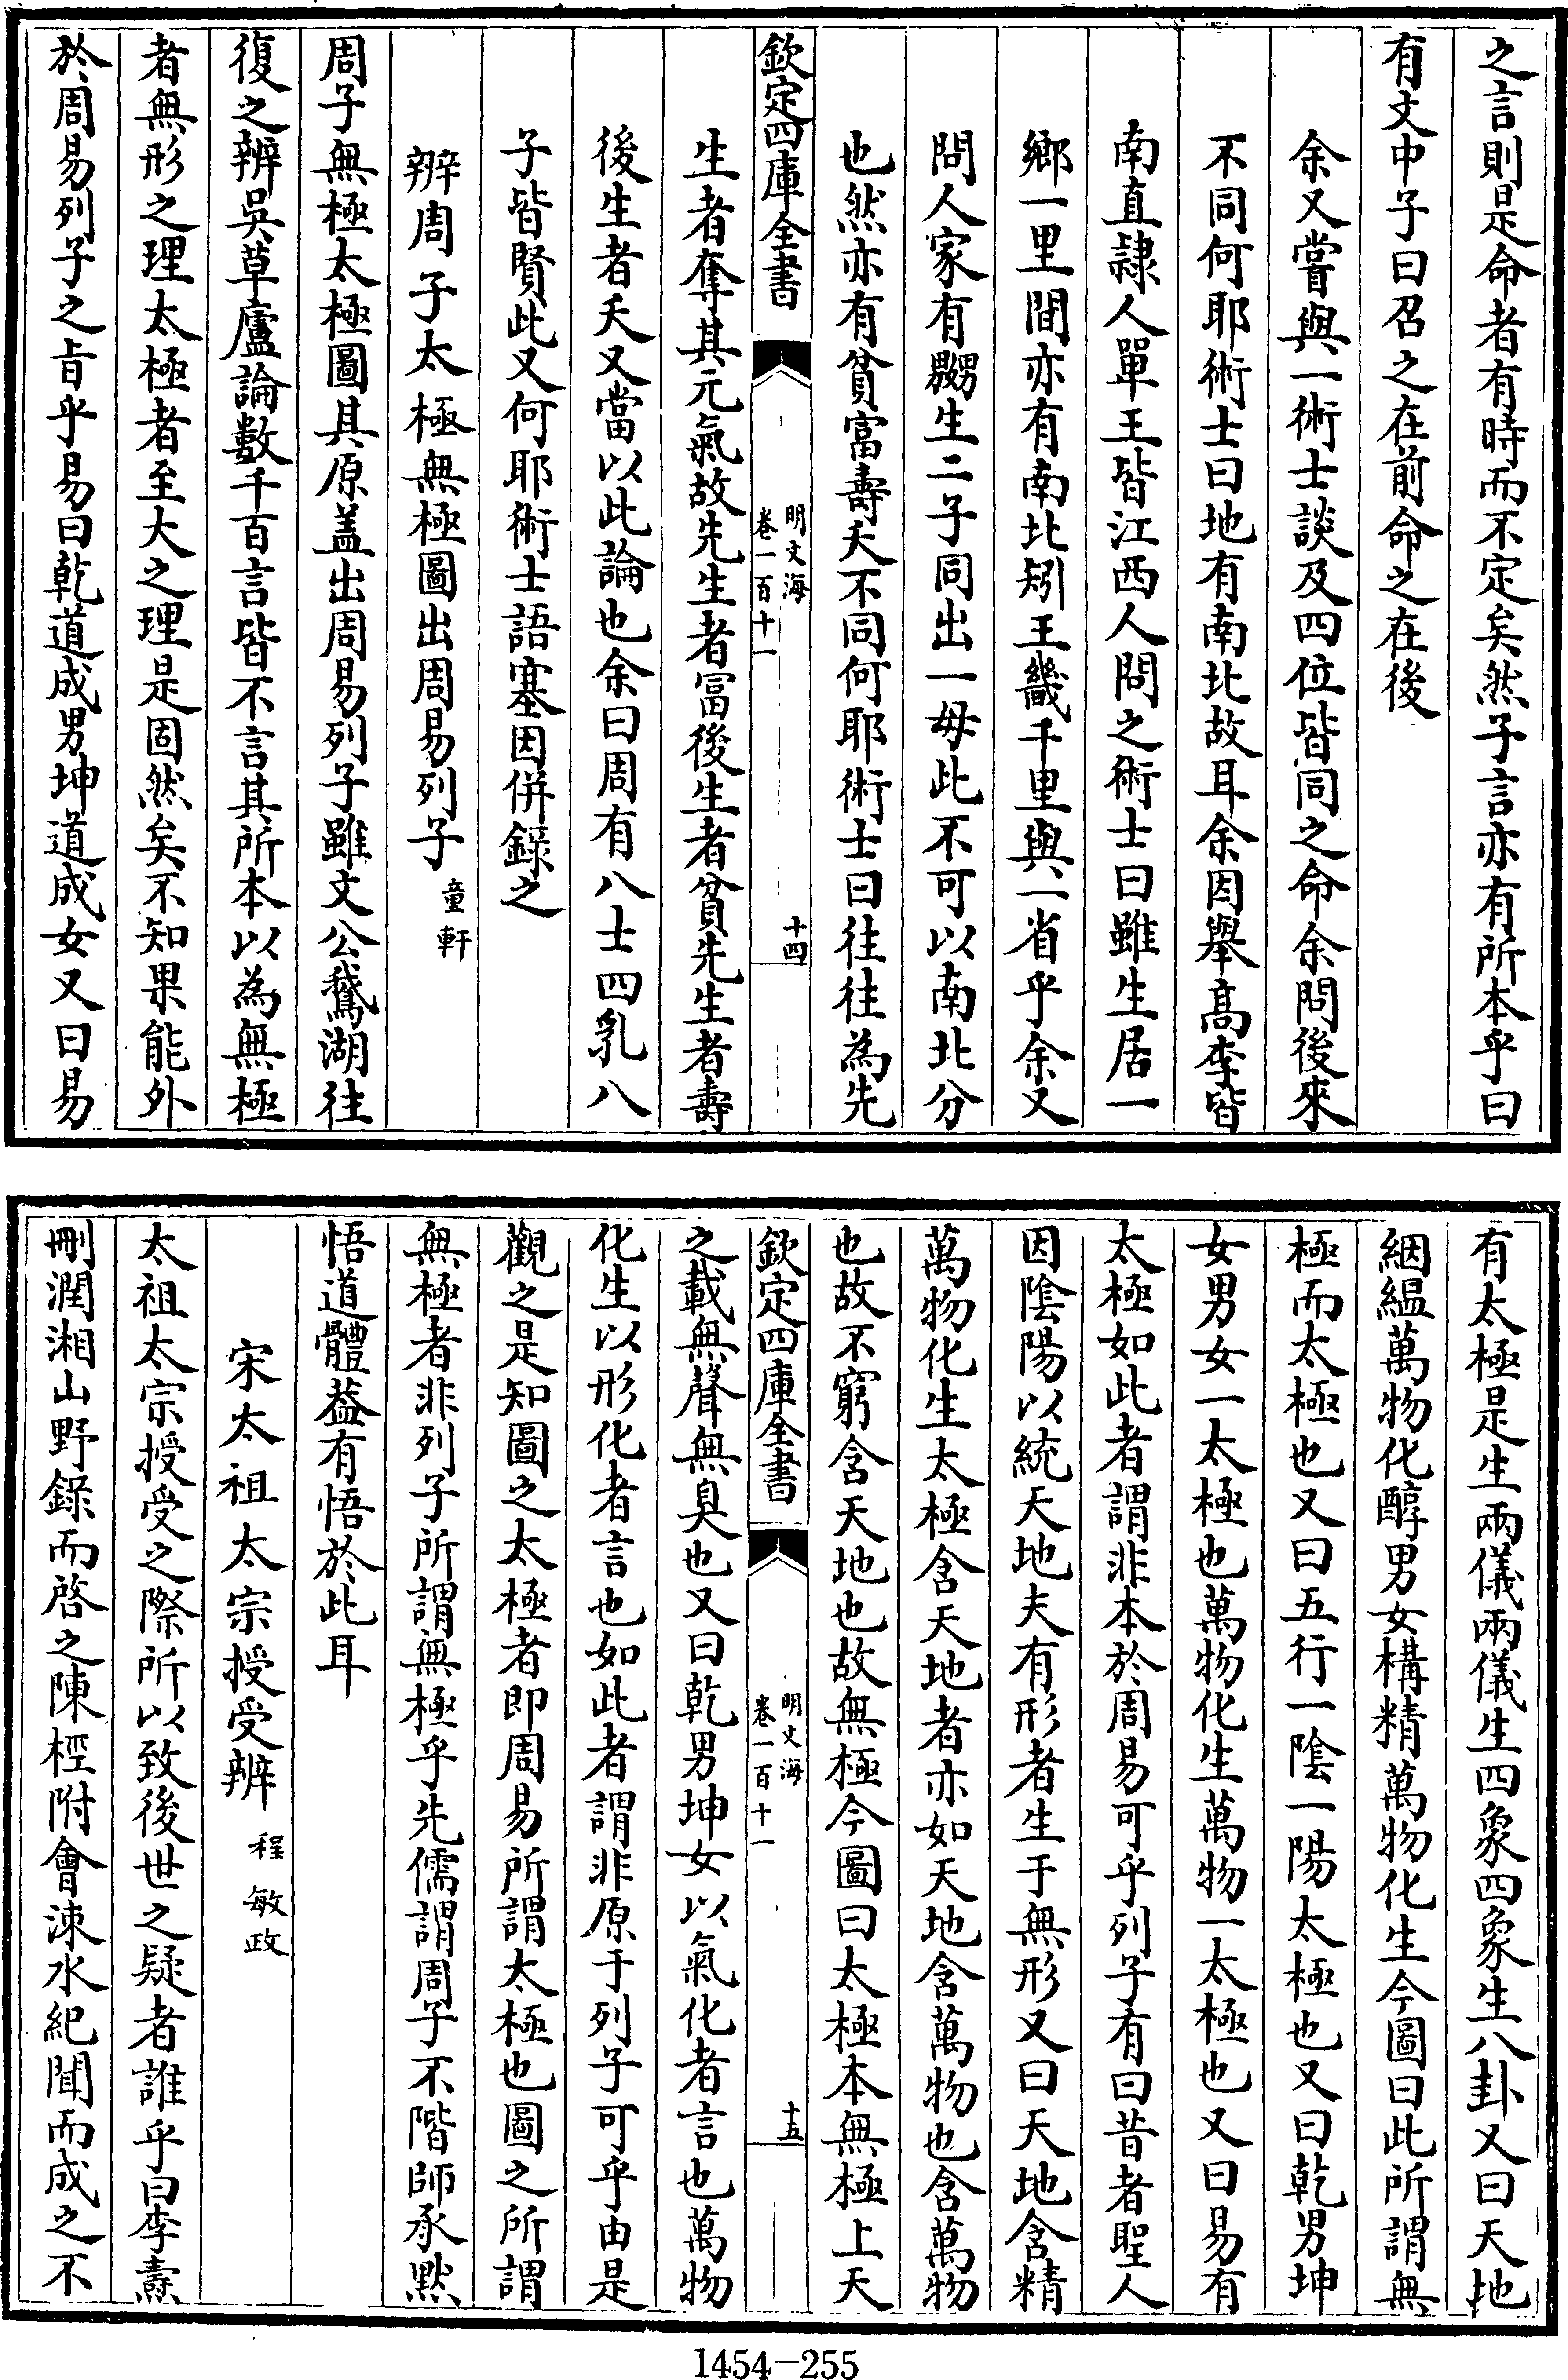 之言則是命者有時而不定矣然子言亦有所本乎曰
有文中子曰召之在前命之在後
余又嘗與一術士談及四位皆同之命余問後來
不同何耶術士曰地有南北故耳余因舉高李皆
南直隷人單王皆江西人問之術士曰雖生居一
鄉一里間亦有南北矧王畿千里與一省乎余又
問人家有嬲生二子同出一母此不可以南北分
也然亦有貧富壽夭不同何耶術士曰往往為先
欽定四庫全書
明文海
卷一百十一
十四
生者奪其元氣故先生者富後生者貧先生者壽
後生者夭又當以此論也余曰周有八士四乳八
子皆賢此又何耶術士語塞因併錄之
辨周子太極無極圖出周易列子 童軒
周子無極太極圖其原盖出周易列子雖文公鵞湖往
復之辨吳草廬論數千百言皆不言其所本以為無極
者無形之理太極者至大之理是固然矣不知果能外
於周易列子之旨乎易曰乾道成男坤道成女又曰易
有太極是生兩儀兩儀生四象四象生八卦又曰天地
絪縕萬物化醇男女構精萬物化生今圖曰此所謂無
極而太極也又曰五行一陰一陽太極也又曰乾男坤
女男女一太極也萬物化生萬物一太極也又曰易有
太極如此者謂非本於周易可乎列子有曰昔者聖人
因陰陽以統天地夫有形者生于無形又曰天地含精
萬物化生太極含天地者亦如天地含萬物也含萬物
也故不窮含天地也故無極今圖曰太極本無極上天
欽定四庫全書
明文海
卷一百十一
十五
之載無聲無臭也又曰乾男坤女以氣化者言也萬物
化生以形化者言也如此者謂非原于列子可乎由是
觀之是知圖之太極者即周易所謂太極也圖之所謂
無極者非列子所謂無極乎先儒謂周子不階師承黙
悟道體葢有悟於此耳
宋太祖太宗授受辨 程敏政
太祖太宗授受之際所以致後世之疑者誰乎曰李燾
刪潤湘山野錄而啓之陳桱附會涑水紀聞而成之不
1454-255